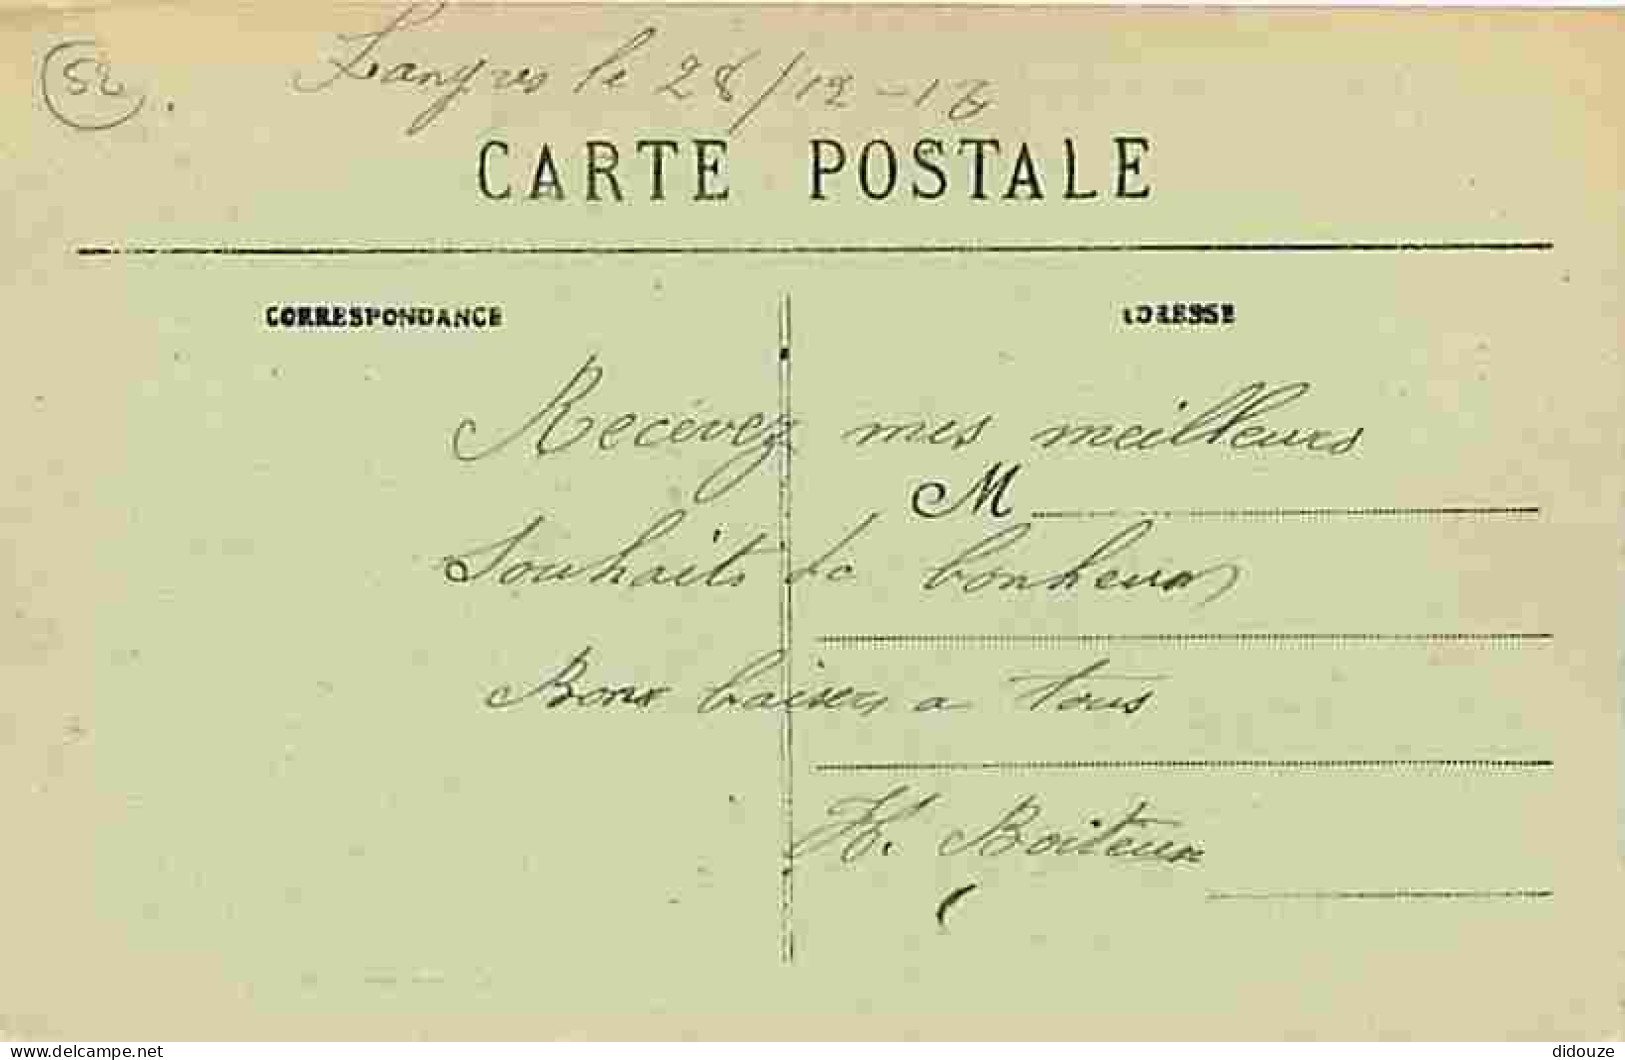 52
Langres le 28/12-16
CARTE POSTALE
CORRESPONDANCE
ADRESSE
Recevez mes meilleurs
M
Souhaits de bonheur
Bons baisers a tous
H. Boiteux
delcampe.net
didouze